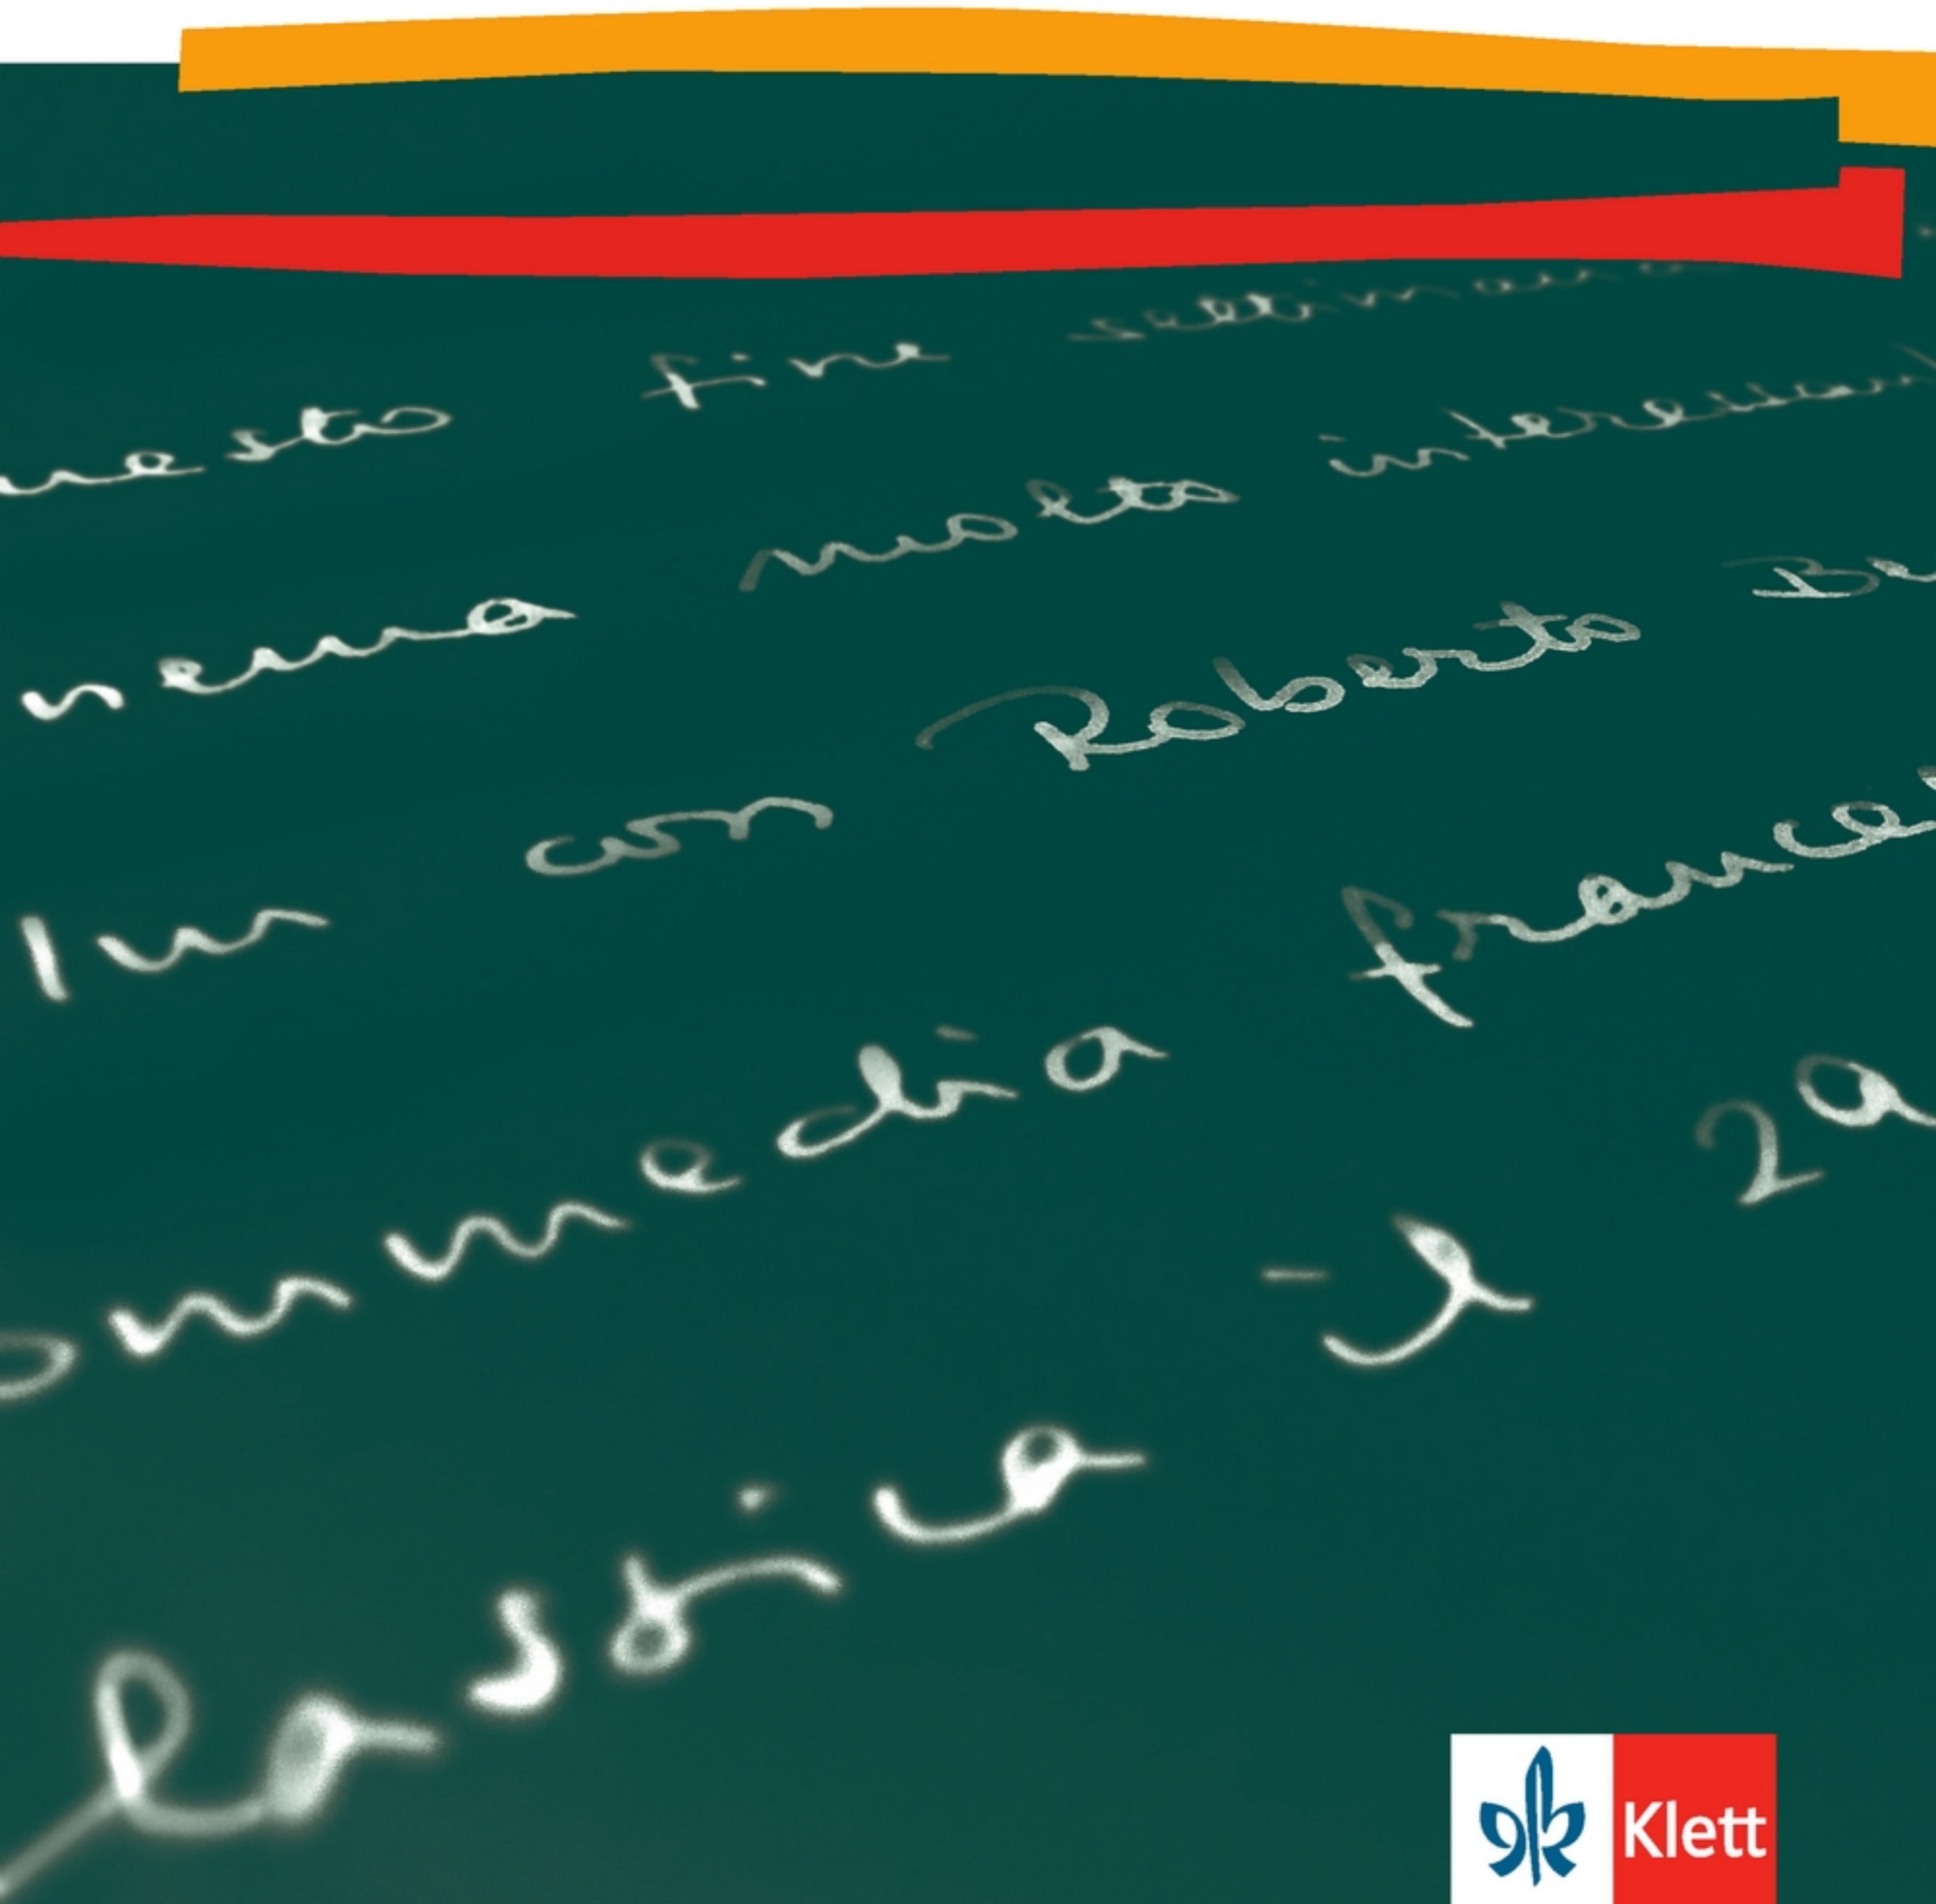 uesto fine settimana
nema molto interessant
lm con Roberto Be
ommedia frances
lassica
Klett